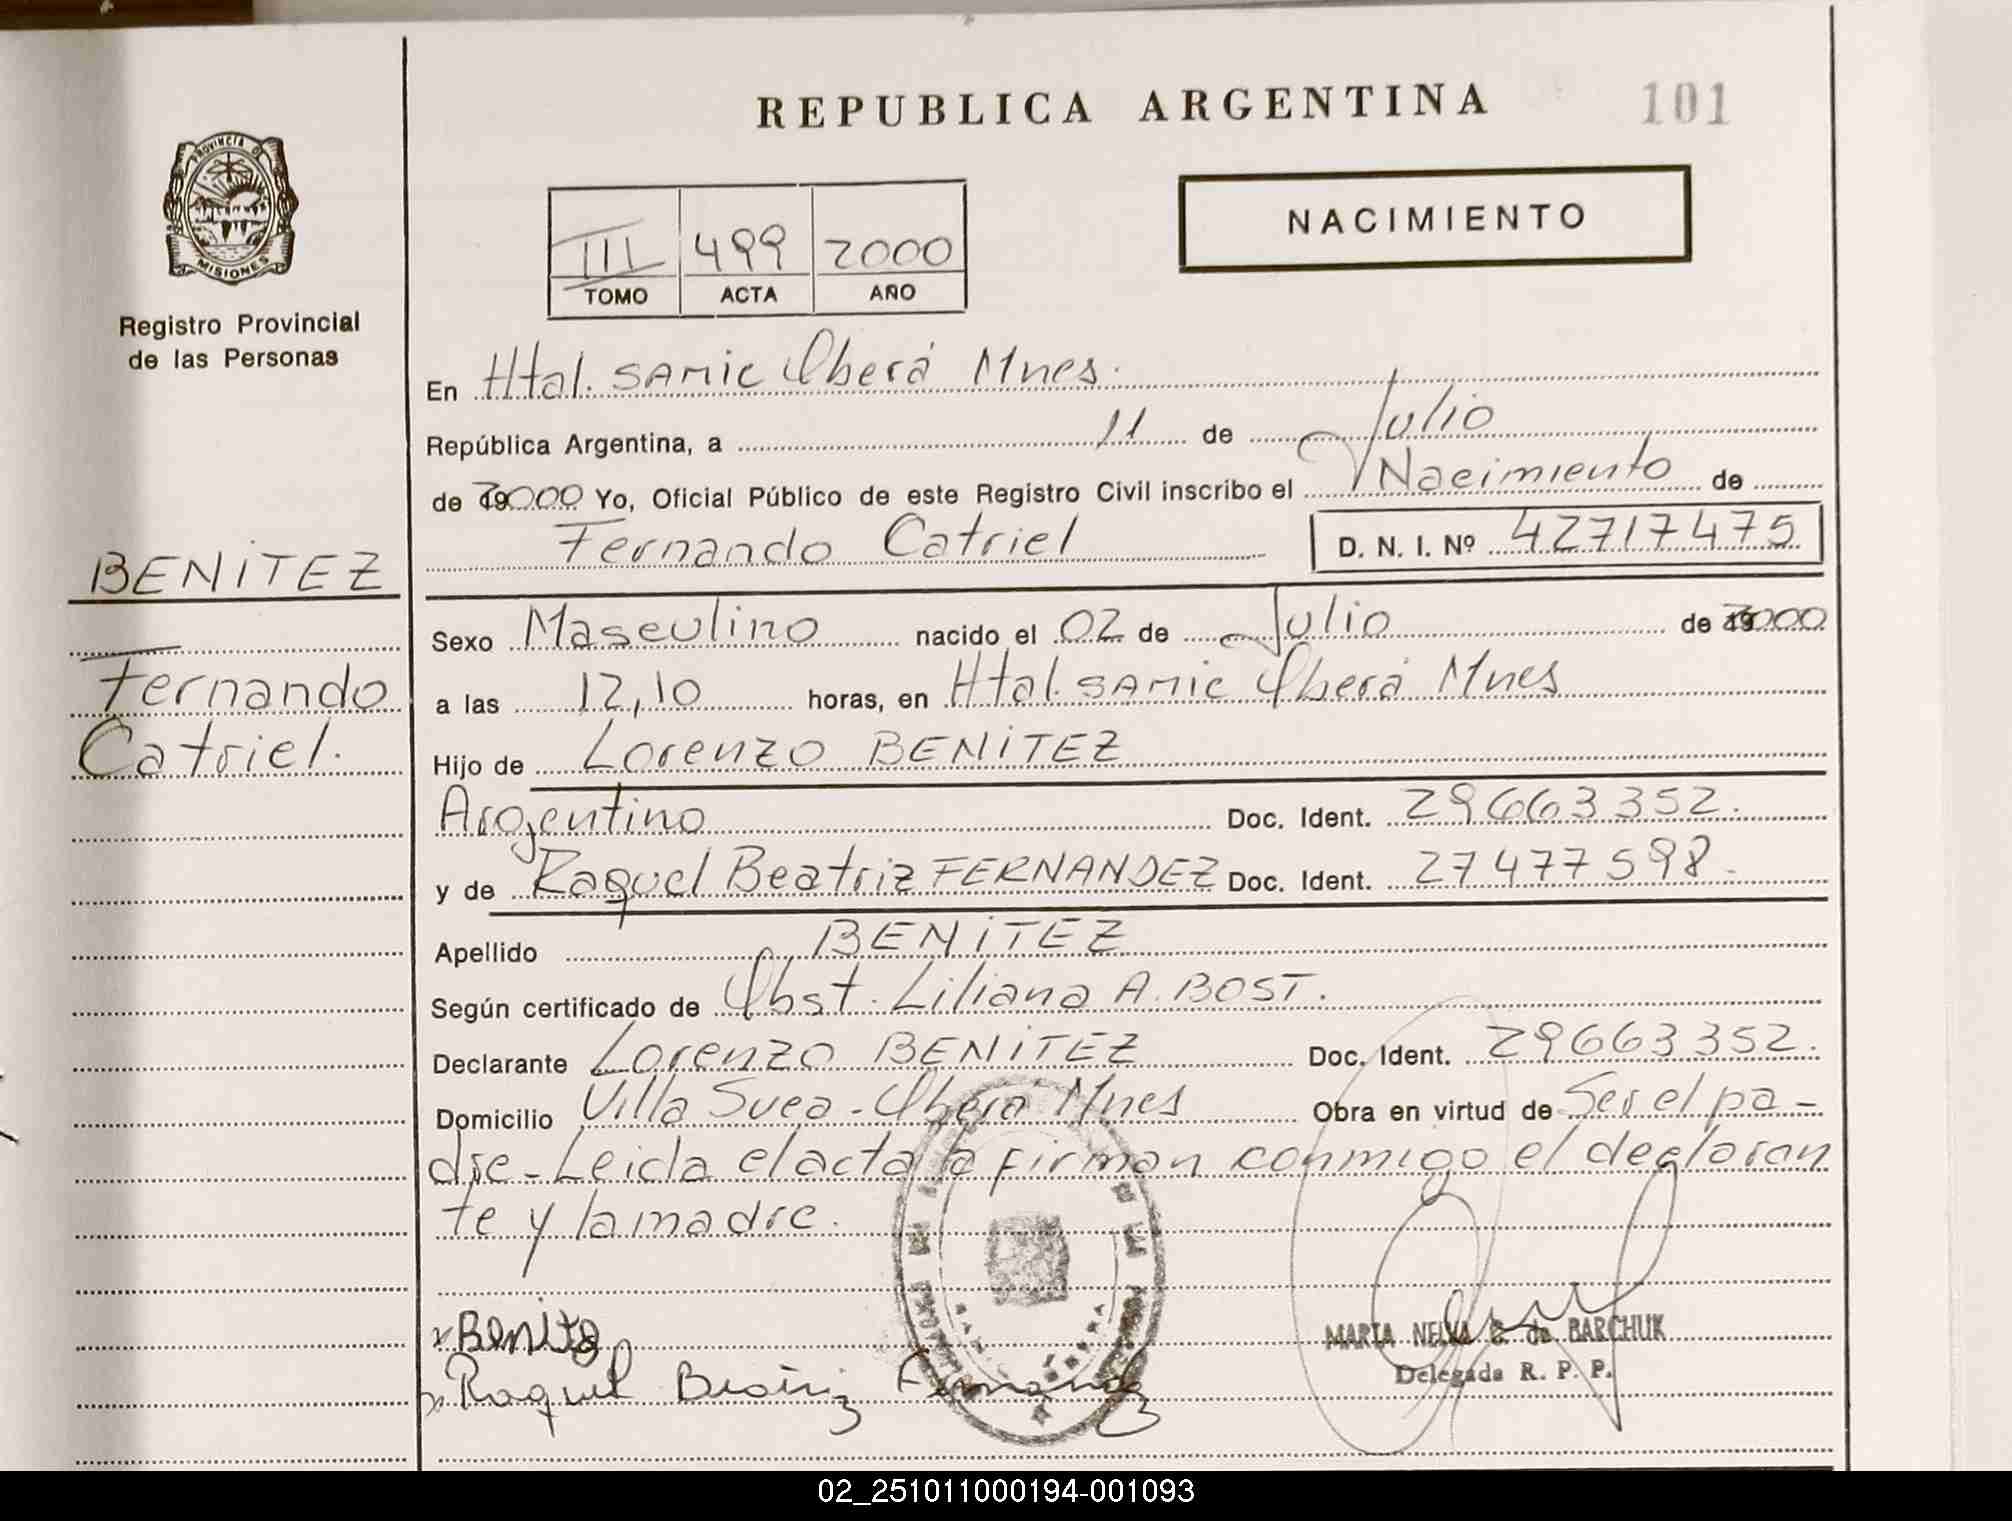 REPUBLICA ARGENTINA
101
PROVINCIA DE
MISIONES
Registro Provincial
de las Personas
NACIMIENTO
III 499 2000
TOMO ACTA AÑO
En Htal. SAMIC Oberá Mnes.
República Argentina, a 11 de Julio
de 2000 Yo, Oficial Público de este Registro Civil inscribo el Nacimiento de
Fernando Catriel D. N. I. Nº 42717475
BENITEZ
Fernando
Catriel.
Sexo Masculino nacido el 02 de Julio de 2000
a las 12,10 horas, en Htal. SAMIC Oberá Mnes
Hijo de Lorenzo BENITEZ
Argentino Doc. Ident. 29663352.
y de Raquel Beatriz FERNANDEZ Doc. Ident. 27477598.
Apellido BENITEZ
Según certificado de Obst. Liliana A. BOST.
Declarante Lorenzo BENITEZ Doc. Ident. 29663352.
Domicilio Villa Suea - Oberá Mnes Obra en virtud de Ser el pa-
dre - Leida el acta la firman conmigo el declaran
te y la madre.
x Benitez
x Raquel Beatriz Fernandez
MARTA de BARCHUK
Delegada R. P. P.
02_251011000194-001093